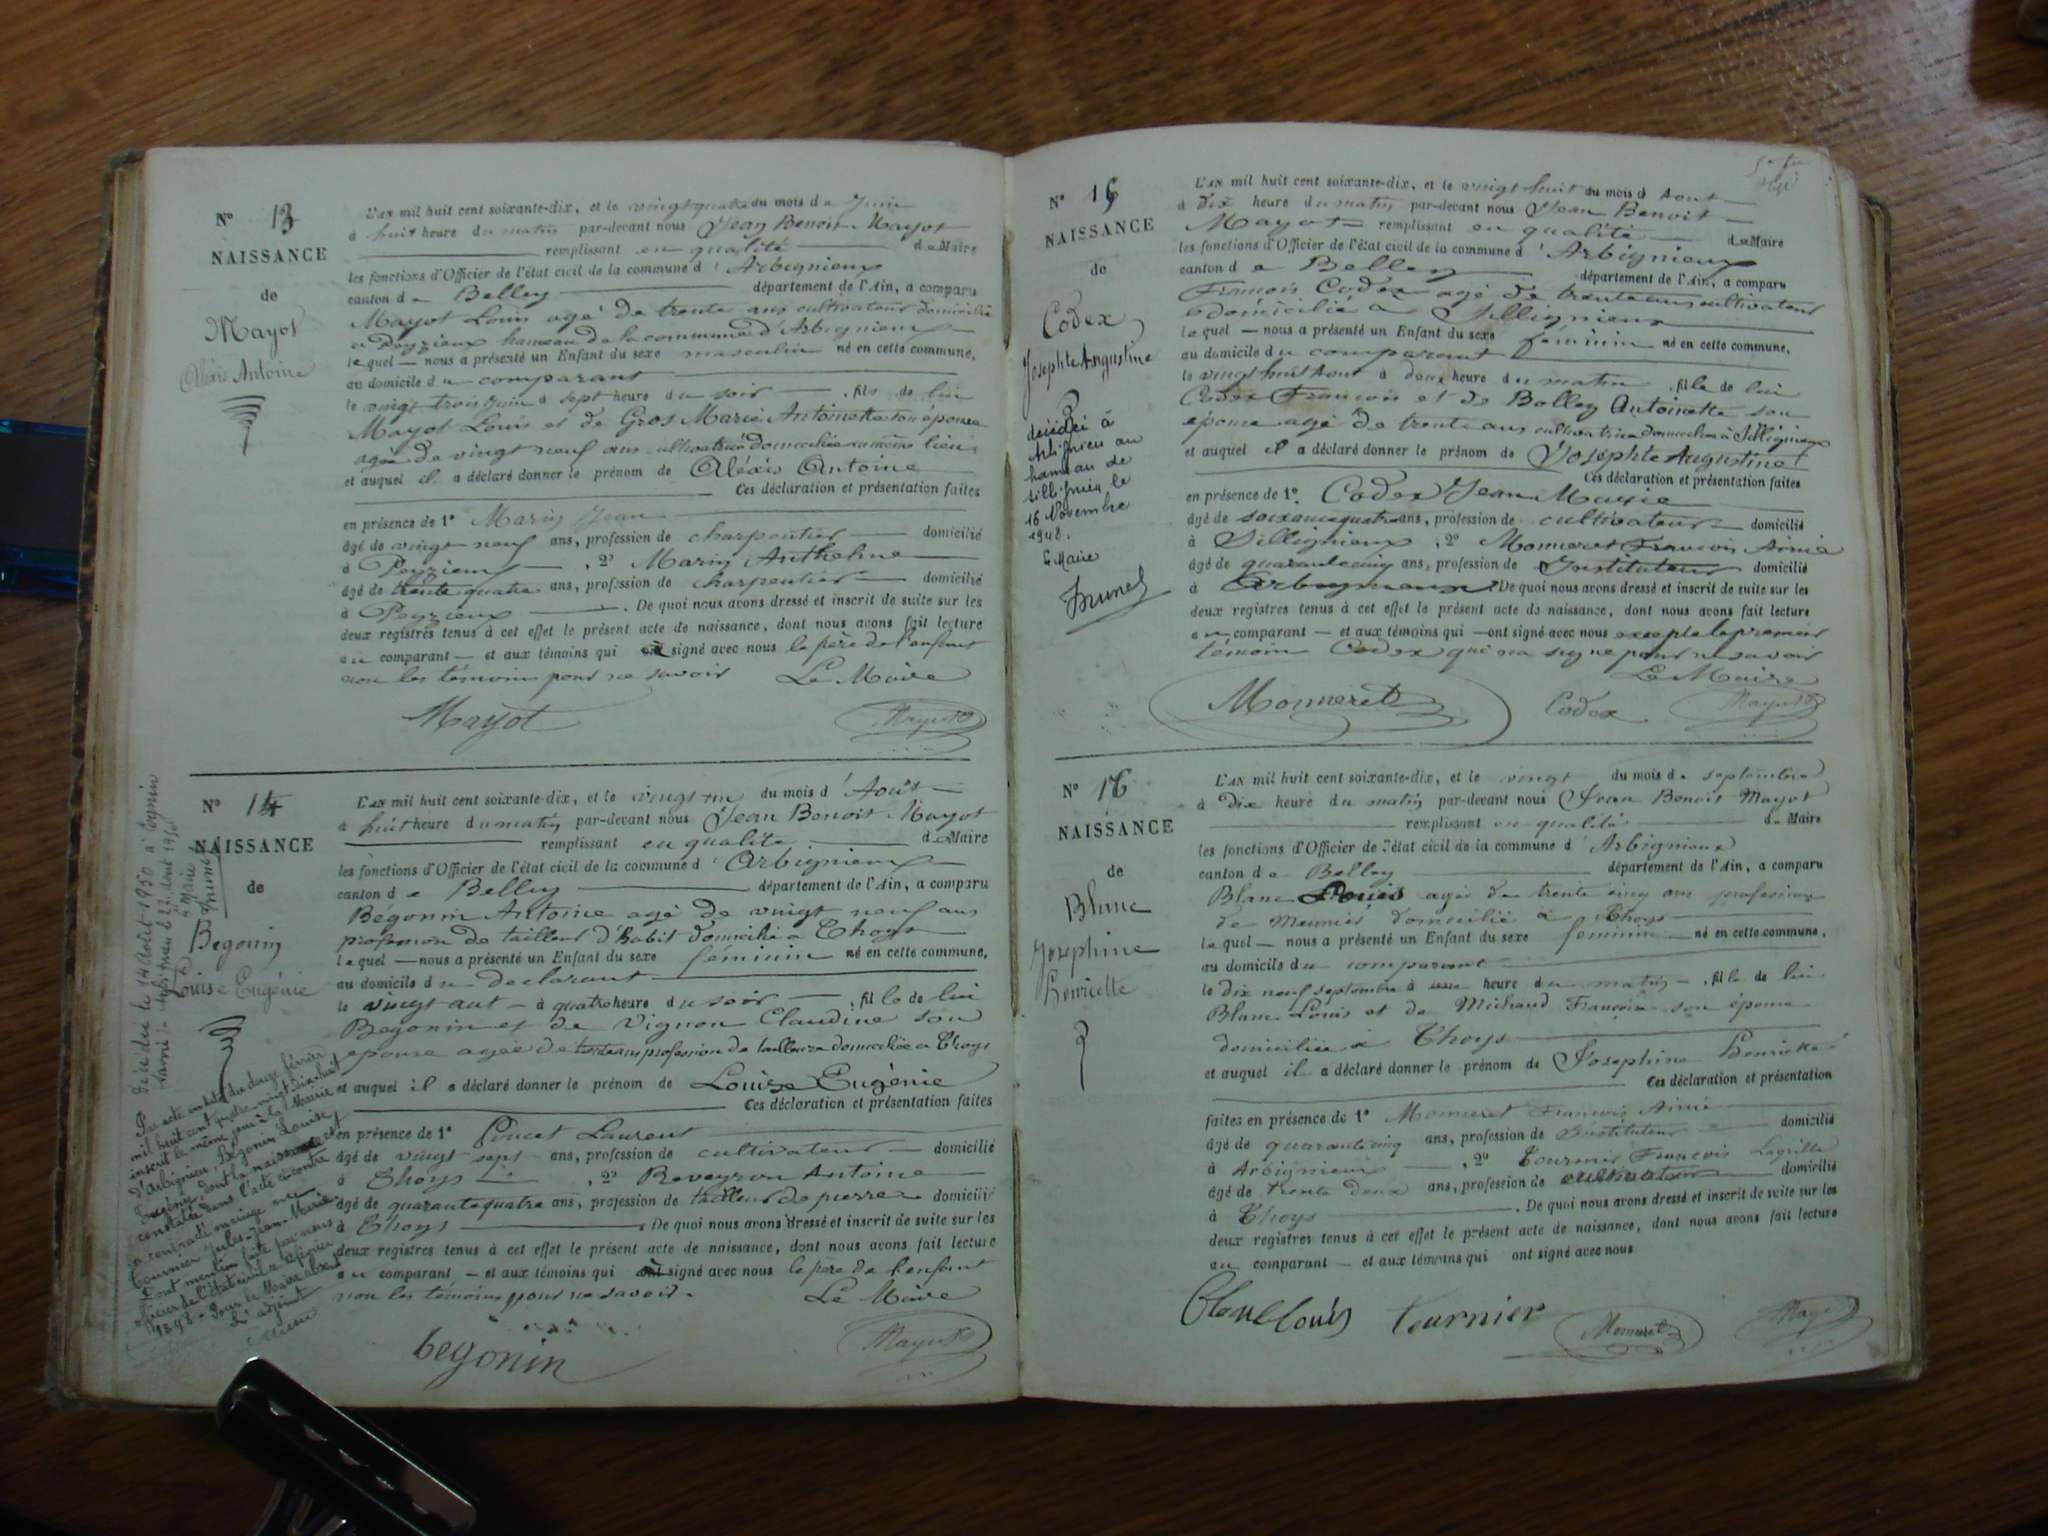 N° 13
NAISSANCE
de
Mayot
Alexis Antoine
L'AN mil huit cent soixante-dix, et le vingt quatre du mois de Juin
à huit heure du matin par-devant nous Jean Benoit Mayot
remplissant en qualité de Maire
les fonctions d'Officier de l'état civil de la commune d'Arbignieux
canton de Belley département de l'Ain, a comparu
Mayot Louis agé de trente ans cultivateur domicilié
a Peyzieux hameau de la commune d'Arbignieux
lequel — nous a présenté un Enfant du sexe masculin né en cette commune,
au domicile du comparant
le vingt trois Juin à sept heure du soir , fils de lui
Mayot Louis et de Gros Marie Antoinette son épouse
agée de vingt neuf ans cultivatrice domiciliée au même lieu
et auquel il a déclaré donner le prénom de Aléxis Antoine
Ces déclaration et présentation faites
en présence de 1° Marin Jean
âgé de vingt neuf ans, profession de charpentier domicilié
à Peyzieux , 2° Marin Anthelme
âgé de trente quatre ans, profession de charpentier domicilié
à Peyzieux . De quoi nous avons dressé et inscrit de suite sur les
deux registres tenus à cet effet le présent acte de naissance, dont nous avons fait lecture
au comparant — et aux témoins qui ont signé avec nous le père de l'enfant
non les témoins pour ne savoir Le Maire
Mayot Mayot
N° 14
NAISSANCE
de
Begonin
Louise Eugénie
Décédée le 14 Août 1950 à
le 22 Août 1950
Le Maire
Brunet
Par acte en date du douze février
mil huit cent quatre-vingt-dix-huit
inscrit le même jour à la Mairie
d'Arbignieu, Begonin Louise
Eugénie, dont la naissance est
constatée dans l'acte ci-contre
a contracté mariage avec
Tournier Jules-Jean-Marie
Dont mention faite par nous
officier de l'état civil le 12 février
1898 - Pour le Maire absent
L'adjoint
L'AN mil huit cent soixante-dix, et le vingt-un du mois d'Août
à huit heure du matin par-devant nous Jean Benoit Mayot
remplissant en qualité de Maire
les fonctions d'Officier de l'état civil de la commune d'Arbignieux
canton de Belley département de l'Ain, a comparu
Bégonin Antoine agé de vingt neuf ans
profession de tailleur d'habit domicilié a Thoys
lequel — nous a présenté un Enfant du sexe féminin né en cette commune,
au domicile du declarant
le vingt aut à quatre heure du soir , fille de lui
Begonin et de Vignon Claudine son
epouse agée de ans profession de tailleuse domiciliée a Thoys
et auquel il a déclaré donner le prénom de Louise Eugénie
Ces déclaration et présentation faites
en présence de 1° Poncet Laurent
âgé de vingt sept ans, profession de cultivateur domicilié
à Thoys , 2° Reveyron Antoine
âgé de quarante quatre ans, profession de tailleur de pierre domicilié
à Thoys . De quoi nous avons dressé et inscrit de suite sur les
deux registres tenus à cet effet le présent acte de naissance, dont nous avons fait lecture
au comparant — et aux témoins qui ont signé avec nous le père de l'enfant
non les témoins pour ne savoir. Le Maire
begonin Mayot
N° 15
NAISSANCE
de
Codex
Josephte Augustine
décédée à
Arbignieu au
hameau de
Sillignieu le
16 Novembre
1948.
Le Maire
Brunet
L'AN mil huit cent soixante-dix, et le vingt huit du mois d Aout
à dix heure du matin par-devant nous Jean Benoit
Mayot remplissant en qualité de Maire
les fonctions d'Officier de l'état civil de la commune d'Arbignieux
canton de Belley département de l'Ain, a comparu
François Codex agé de trente ans cultivateur
domicilié a Sillignieux
lequel — nous a présenté un Enfant du sexe féminin né en cette commune,
au domicile du comparant
le vingt huit Aout à deux heure du matin , fille de lui
Codex François et de Bolley Antoinette son
épouse agé de trente ans cultivatrice domiciliée à Sillignieux
et auquel il a déclaré donner le prénom de Josephte Augustine
Ces déclaration et présentation faites
en présence de 1° Codex Jean Marie
âgé de soixante quatre ans, profession de cultivateur domicilié
à Sillignieux , 2° Monneret François Aimé
âgé de quarante cinq ans, profession de Instituteur domicilié
à Arbignieux De quoi nous avons dressé et inscrit de suite sur les
deux registres tenus à cet effet le présent acte de naissance, dont nous avons fait lecture
au comparant — et aux témoins qui — ont signé avec nous excepté le premier
témoin Codex qui n'a signé pour ne savoir
Le Maire
Monneret Codex Mayot
N° 16
NAISSANCE
de
Blanc
Josephine
Henriette
L'AN mil huit cent soixante-dix, et le vingt du mois de septembre
à dix heure du matin par-devant nous Jean Benoit Mayot
remplissant en qualité de Maire
les fonctions d'Officier de l'état civil de la commune d'Arbignieux
canton de Belley département de l'Ain, a comparu
Blanc Louis agé de trente cinq ans profession
de Meunier domicilié à Thoys
lequel — nous a présenté un Enfant du sexe feminin né en cette commune,
au domicile du comparant
le dix neuf septembre à heure du matin , fille de lui
Blanc Louis et de Michaud Françoise son épouse
domiciliée à Thoys
et auquel il a déclaré donner le prénom de Josephine Henriette
Ces déclaration et présentation
faites en présence de 1° Monneret François Aimé
âgé de quarante cinq ans, profession de Instituteur domicilié
à Arbignieux , 2° Tournier François
âgé de trente deux ans, profession de cultivateur domicilié
à Thoys . De quoi nous avons dressé et inscrit de suite sur les
deux registres tenus à cet effet le présent acte de naissance, dont nous avons fait lecture
au comparant — et aux témoins qui ont signé avec nous
Blanc Louis tournier Monneret Mayot